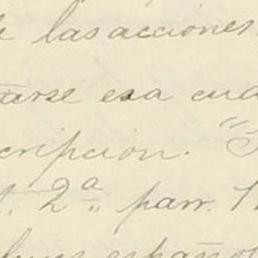 las acciones
tarse esa cua
cripcion. "
2ª parr. 1
español